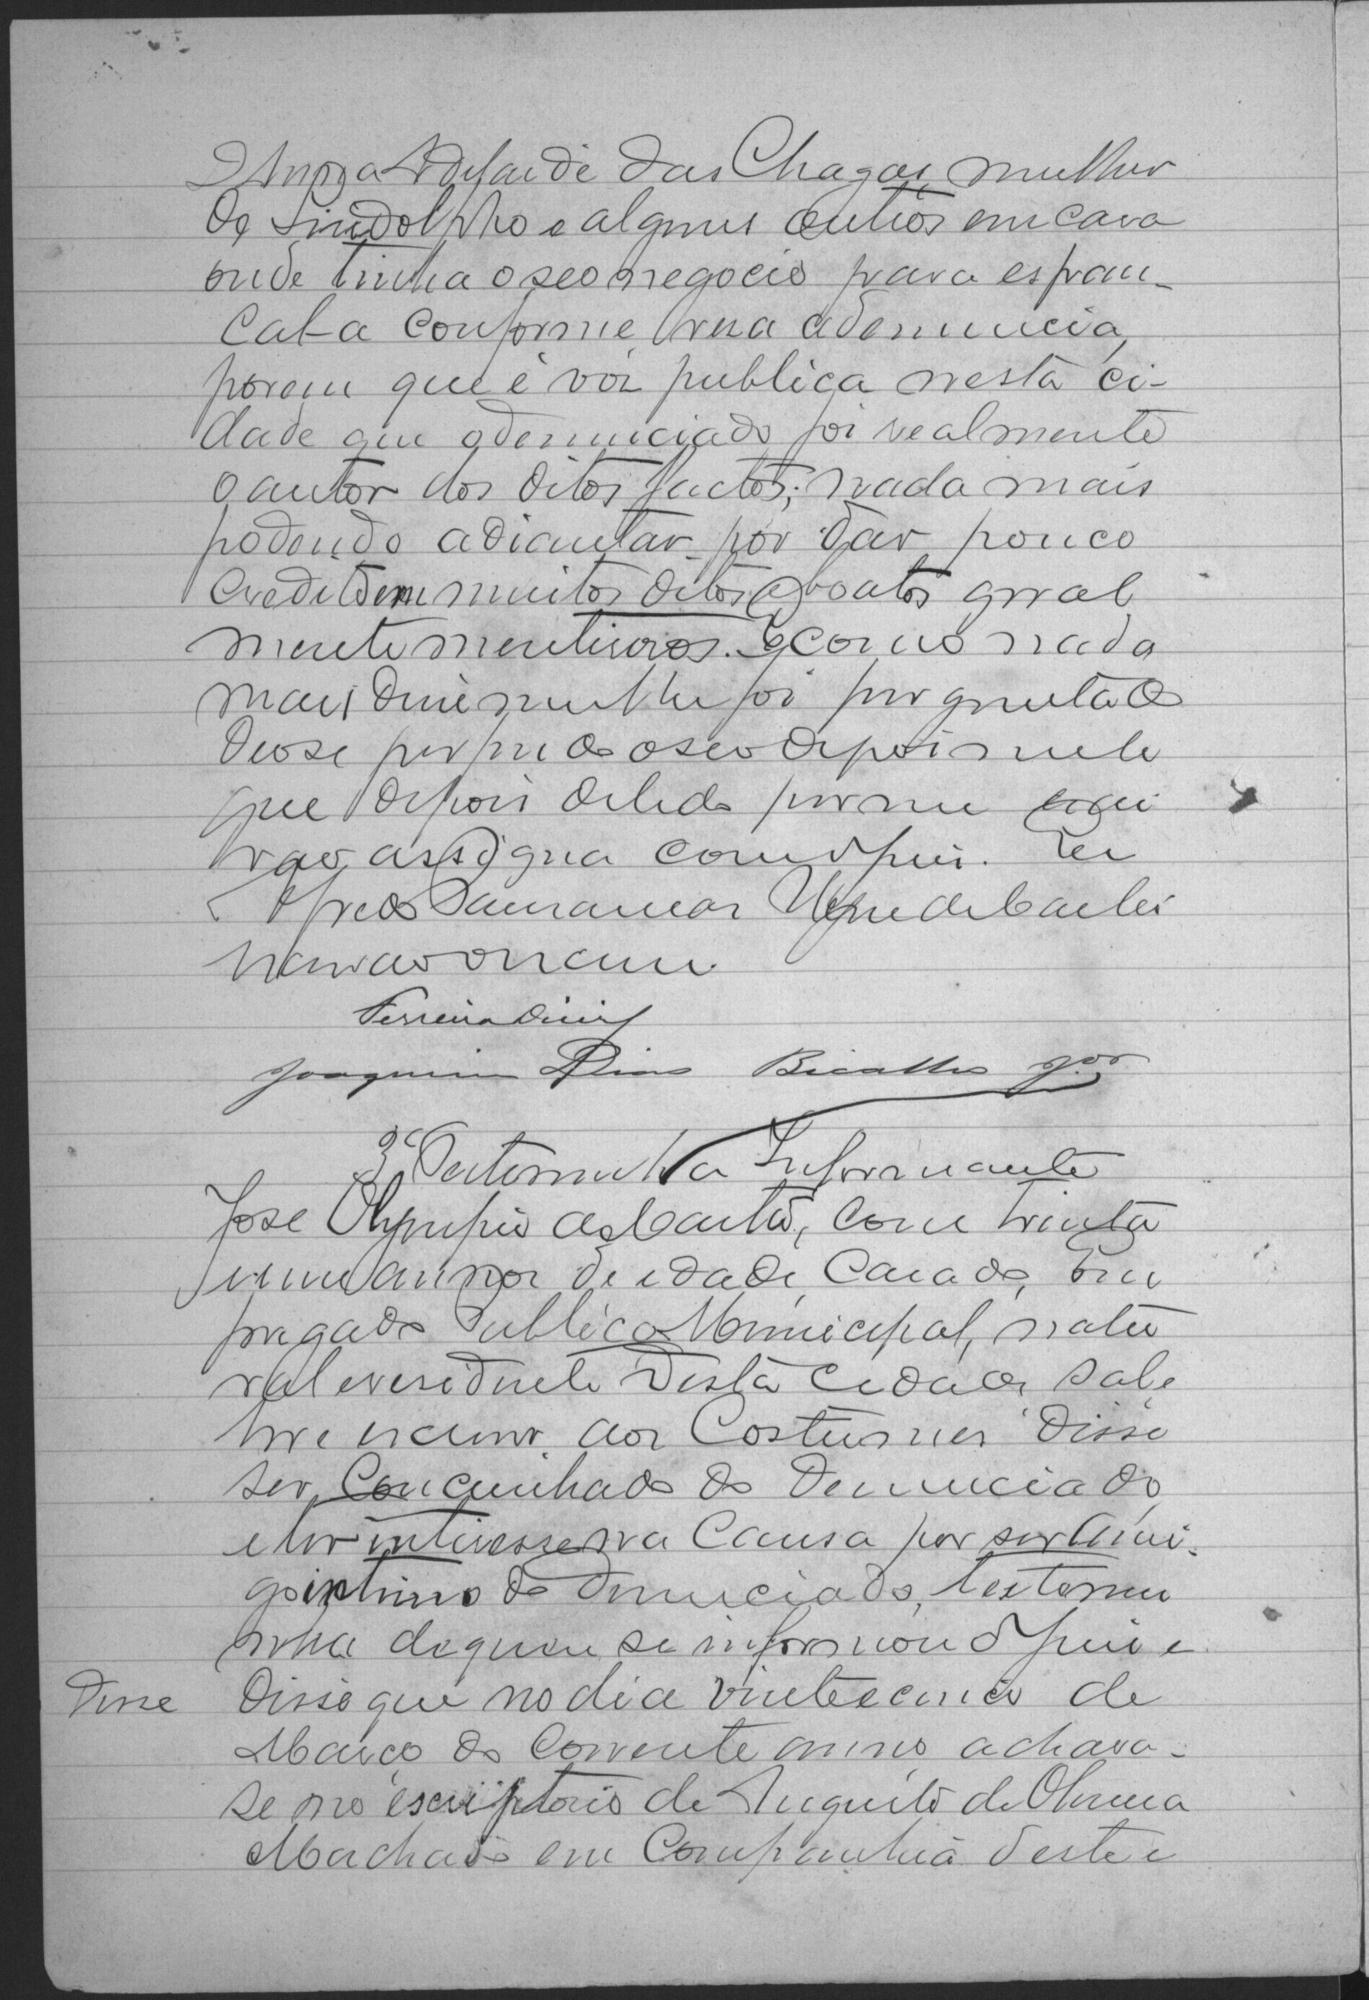 D Anna Adelaide das Chagas, mulher
de Lindolpho e algums outros em casa
onde tinha o seo negocio para espan-
cal-a conforme resa a denuncia,
porem que é vóz publica nesta ci-
dade que o denunciado foi realmente
o autor dos ditos factos; nada mais
podendo adiantar por dar pouco
credito em muitos ditos e boatos geral
mente mentirosos. E como nada
mais disse nem lhe foi perguntado
deose por findo o seo depoimento
que depois de lido por mim
assigna com o Juiz. Eu
Alfredo
Ferreira Diniz
Joaquim Dias Bicalho Jor
3ª Testemunha Informante
José Olympio de Castro, com trinta
e um annos de idade, casado, em
pregado Publico Municipal, natu
ral e residente desta cidade, sabe
ler e escrever, aos Costumes disse
ser concunhado do denunciado,
e ter interesse na causa por ser ami-
go intimo do denunciado, testemu
nha de quem se informou o Juiz e
Disse
disse que no dia vinte e cinco de
Março do corrente anno, achava-
se no escriptorio de Augusto de Oliveira
Machado em companhia deste e